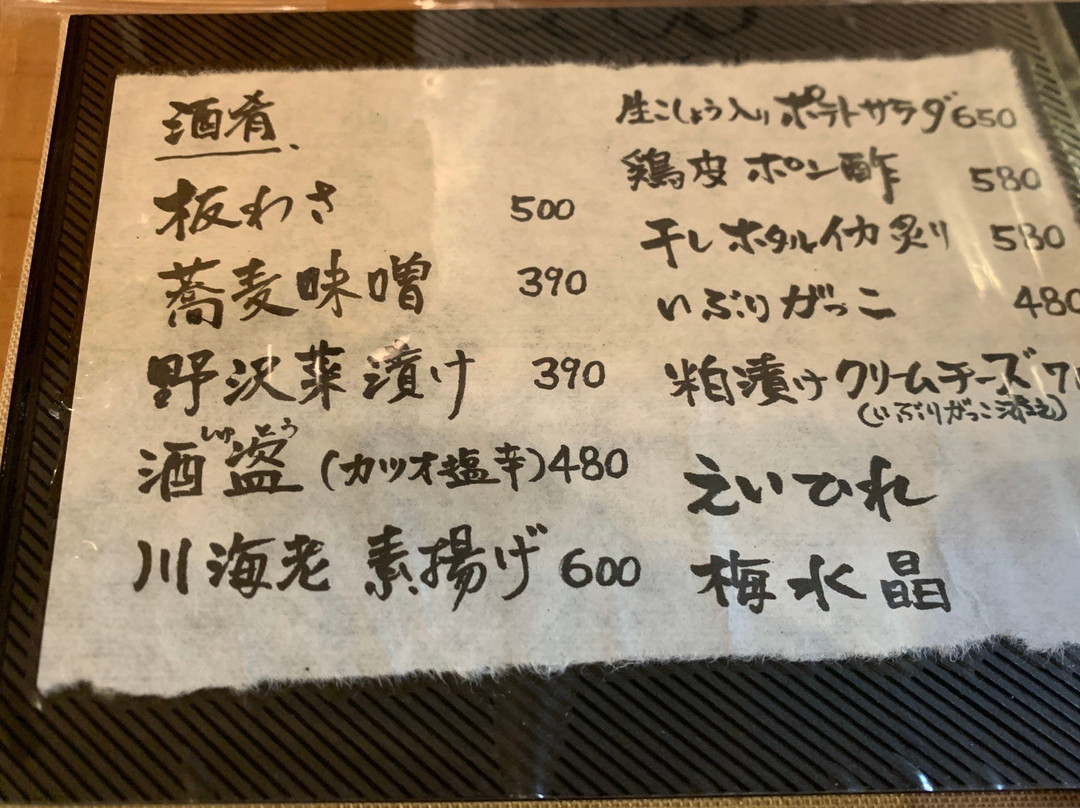 酒肴
板わさ 500
蕎麦味噌 390
野沢菜漬け 390
しゅとう
酒盗(カツオ塩辛)480
川海老 素揚げ 600
生こしょう入り ポテトサラダ 650
鶏皮 ポン酢 580
干しホタルイカ炙り 580
いぶりがっこ 480
粕漬けクリームチーズ 7
(いぶりがっこ添え)
えいひれ
梅水晶